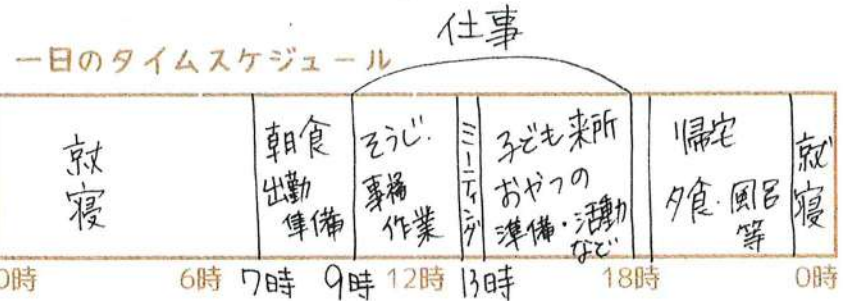 仕事
一日のタイムスケジュール
就寝
朝食
出勤
準備
そうじ.
事務
作業
ミーティング
子ども来所
おやつの
準備・活動
など
帰宅
夕食・風呂
等
就寝
0時 6時 7時 9時 12時 13時 18時 0時